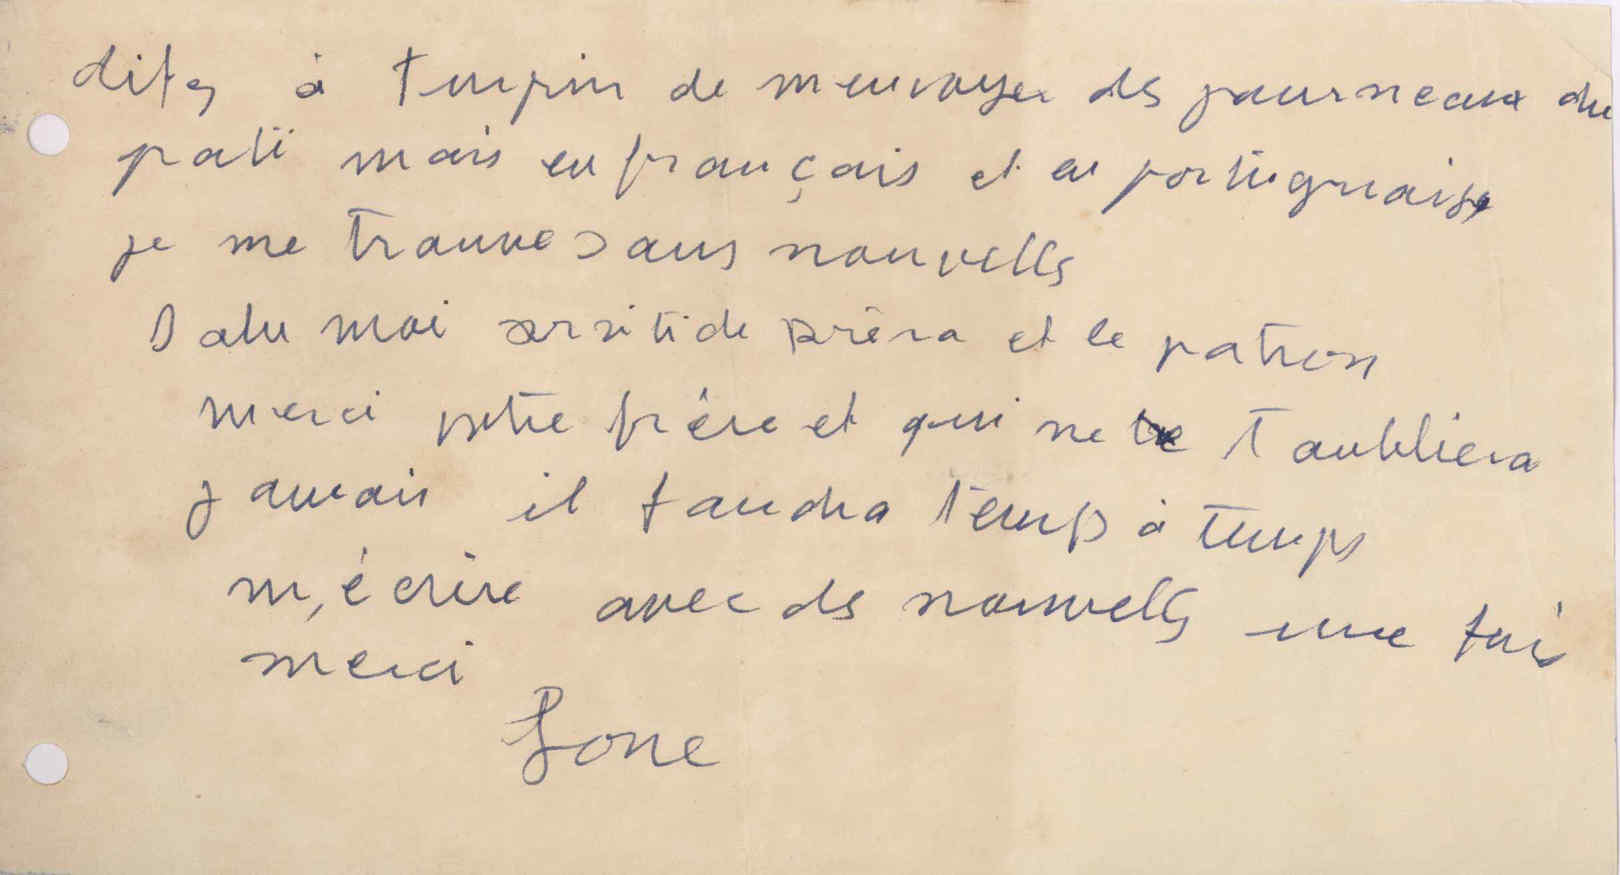 dites à Turpin de menvoyer des journeaux du
pati mais en français et en portuguaise
je me trouve sans nouvells
Salu moi aristide
 et le patron
merci votre frère et qui ne toubliera
jamais il faudra temps à temps
m,écrire avec des nouvells une fois
merci